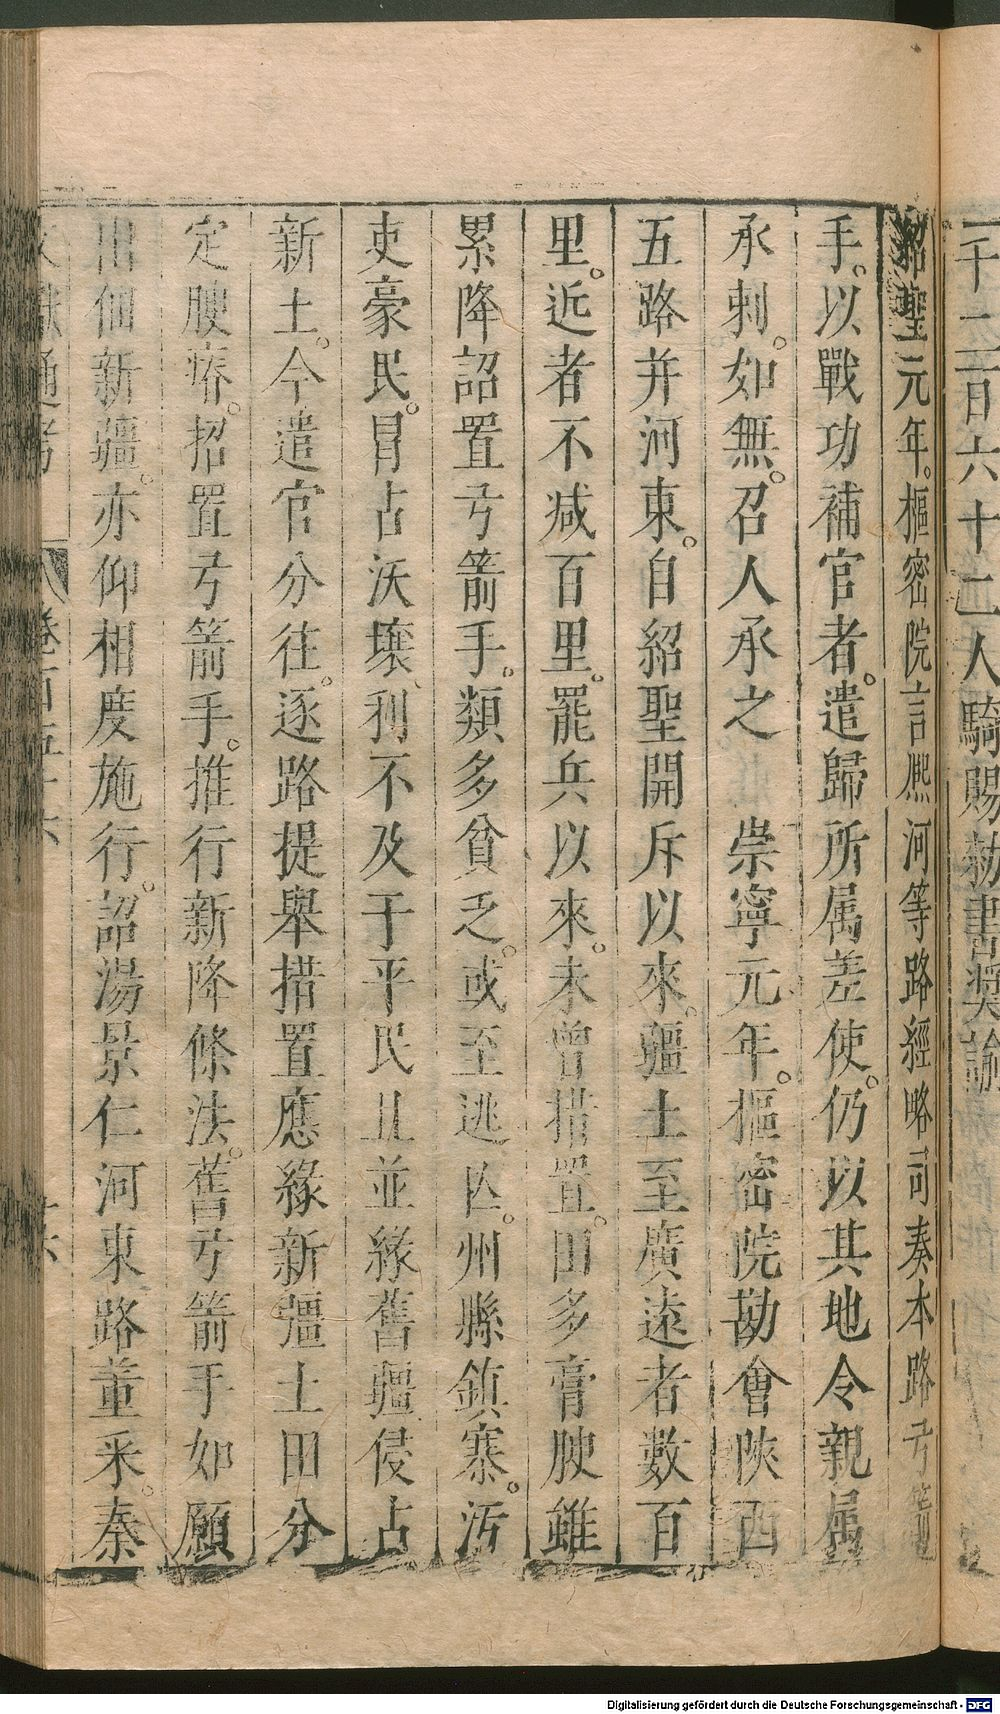 一千二百六十二人騎賜勑書獎諭
紹聖元年。樞密院言熙河等路經略司奏本路弓箭
手。以戰功補官者。遣歸所属差使。仍以其地令親属
承刺。如無。召人承之　崇寧元年。樞密院勘會陝西
五路并河東。自紹聖開斥以來。疆土至廣遠者數百
里。近者不减百里。罷兵以來。未曾措置。田多膏腴雖
累降詔置弓箭手。類多貧乏。或至逃亾。州縣鎮寨。汚
吏豪民。冒占沃壤、利不及于平民且並緣舊疆侵占
新土。今遣官分往。逐路提舉措置應緣新疆土田分
定腴瘠。招置弓箭手。推行新降條法。舊弓箭手如願
出佃新疆。亦仰相度施行。詔湯景仁河東路董采。秦
文獻通考　卷百五十六　十六
Digitalisierung gefördert durch die Deutsche Forschungsgemeinschaft - DFG